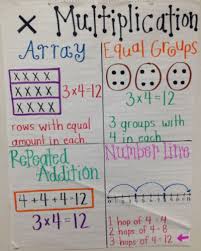 × Multiplication
Array
X X X X
X X X X
X X X X
3×4=12
rows with equal
amount in each
Equal Groups
3×4=12
3 groups with
4 in each
Repeated
Addition
4+4+4=12
3×4=12
Number Line
1 hop of 4=4
2 hops of 4=8
3 hops of 4=12